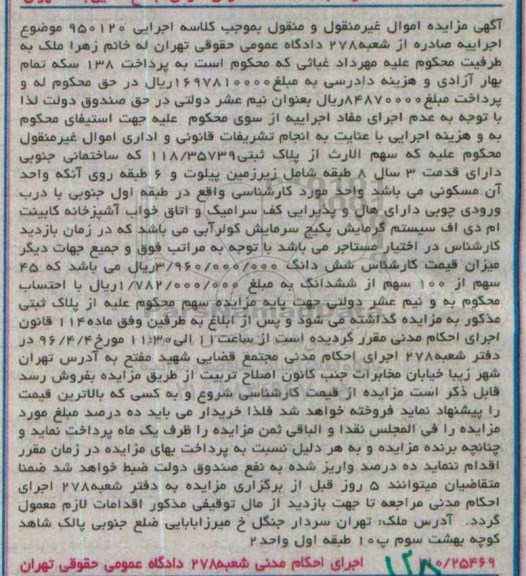 آگهی مزایده اموال غیرمنقول و منقول بموجب کلاسه اجرایی ۹۵۰۱۲۰ موضوع
اجراییه صادره از شعبه۲۷۸ دادگاه عمومی حقوقی تهران له خانم زهرا ملک به
طرفیت محکوم علیه مهرداد غیاثی که محکوم است به پرداخت ۱۳۸ سکه تمام
بهار آزادی و هزینه دادرسی به مبلغ۱۶۹۷۸۱۰۰۰۰ریال در حق محکوم له و
پرداخت مبلغ۸۴۸۷۰۰۰۰ریال بعنوان نیم عشر دولتی در حق صندوق دولت لذا
با توجه به عدم اجرای مفاد اجراییه از سوی محکوم علیه جهت استیفای محکوم
به و هزینه اجرایی با عنایت به انجام تشریفات قانونی و اداری اموال غیرمنقول
محکوم علیه که سهم الارث از پلاک ثبتی۱۱۸/۳۵۷۳۹ که ساختمانی جنوبی
دارای قدمت ۳ سال ۸ طبقه شامل زیرزمین پیلوت و ۶ طبقه روی آنکه واحد
آن مسکونی می باشد واحد مورد کارشناسی واقع در طبقه اول جنوبی با درب
ورودی چوبی دارای هال و پذیرایی کف سرامیک و اتاق خواب آشپزخانه کابینت
ام دی اف سیستم گرمایش پکیج سرمایش کولرآبی می باشد که در زمان بازدید
کارشناس در اختیار مستاجر می باشد با توجه به مراتب فوق و جمیع جهات دیگر
میزان قیمت کارشناس شش دانگ ۳/۹۶۰/۰۰۰/۰۰۰ریال می باشد که ۴۵
سهم از ۱۰۰ سهم از ششدانگ به مبلغ ۱/۷۸۲/۰۰۰/۰۰۰ریال با احتساب
محکوم به و نیم عشر دولتی جهت پایه مزایده سهم محکوم علیه از پلاک ثبتی
مذکور به مزایده گذاشته می شود و پس از ابلاغ به طرفین وفق ماده۱۱۴ قانون
اجرای احکام مدنی مقرر گردیده است از ساعت۱۱ الی۱۱:۳۰ مورخ۹۶/۴/۴ در
دفتر شعبه۲۷۸ اجرای احکام مدنی مجتمع قضایی شهید مفتح به آدرس تهران
شهر زیبا خیابان مخابرات جنب کانون اصلاح تربیت از طریق مزایده بفروش رسد
قابل ذکر است مزایده از قیمت کارشناسی شروع و به کسی که بالاترین قیمت
را پیشنهاد نماید فروخته خواهد شد فلذا خریدار می باید ده درصد مبلغ مورد
مزایده را فی المجلس نقدا و الباقی ثمن مزایده را ظرف یک ماه پرداخت نماید و
چنانچه برنده مزایده و به هر دلیل نسبت به پرداخت بهای مزایده در زمان مقرر
اقدام ننماید ده درصد واریز شده به نفع صندوق دولت ضبط خواهد شد ضمنا
متقاضیان میتوانند ۵ روز قبل از برگزاری مزایده به دفتر شعبه۲۷۸ اجرای
احکام مدنی مراجعه تا جهت بازدید از مال توقیفی مذکور اقدامات لازم معمول
گردد. آدرس ملک: تهران سردار جنگل خ میرزابابایی ضلع جنوبی پالک شاهد
کوچه بهشت سوم پ۱۰ طبقه اول واحد۲
۰/۲۵۴۶۹ اجرای احکام مدنی شعبه۲۷۸ دادگاه عمومی حقوقی تهران